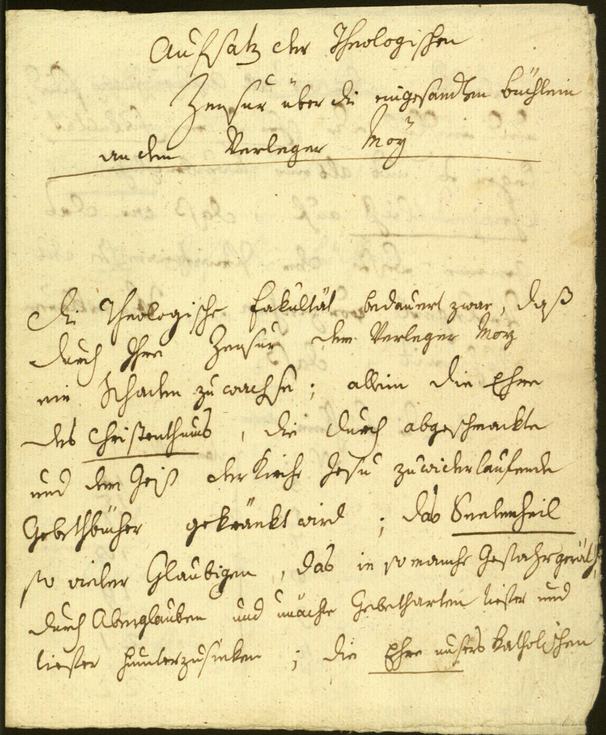 Aufsatz der Theologischen
Zensur über die eingesandten büchlein
an den Verleger Moÿ
Die Theologische Fakultät bedauert zwar, daß
durch Ihre Zensur dem Verleger Moy
ein Schaden zuwachse; allein die Ehre
des Christenthums, die durch abgeschmackte
und dem Geist der Kirche Jesu zuwiderlaufende
Gebethbücher gekränkt wird; das Seelenheil
so vieler Glaubigen, das in so manche Gefahr geräth,
durch Aberglauben und unächte Gebetharten tiefer und
tiefer hinunterzusinken; die Ehre unsers Katholischen